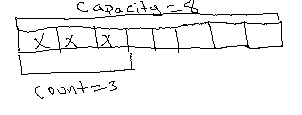 Capacity=8
X X X
Count=3